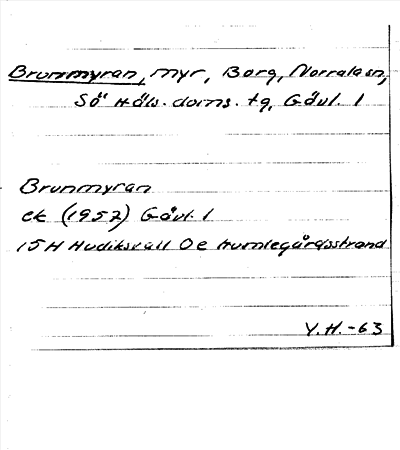 Brunmyran, myr, Borg, Norralasn,
Sö Häls. doms. tg, Gävl. l
Brunmyran
ek (1957) Gävl. l
15H Hudiksvall Oe Humlegårdsstrand
Y.H.-63